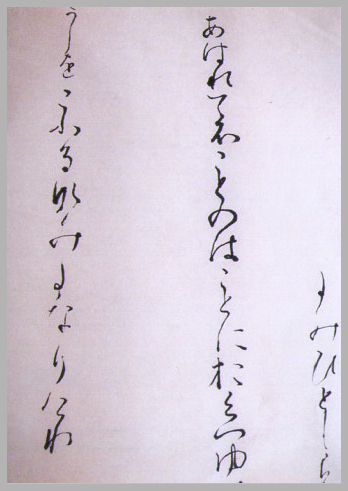 よみひとしら
あはれてふことのはことにおくつゆ
かしをこふるなみたなりけり